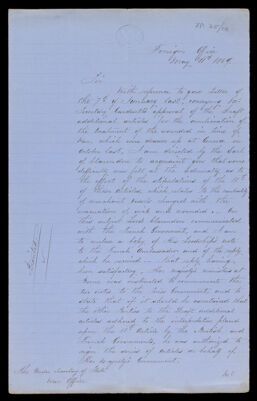 Foreign Office
May 11th 1869
Sir
With reference to your letter of
the 7th of January last, conveying Mr
Secretary Cardwell's approval of the Draft
additional articles for the amelioration of
the treatment of the wounded in time of
War, which were drawn up at Geneva in
October last, I am directed by the Earl
of Clarendon to acquaint you that some
difficulty was felt at the Admiralty as to
the effect of the stipulations of the
of those Articles, which relates to the neutrality
of merchant vessels charged with the
evacuation of sick and wounded. On
this subject Lord Clarendon communicated
with the French Government, and I am
to enclose a copy of His Lordship's note
to the French Ambassador and of the reply
which he received. That reply having
been satisfactory, Her Majesty's Minister at
Berne was instructed to communicate the
two notes to the Swiss Government and to
state that if it should be ascertained that
the other Parties to the Draft additional
articles adhered to the interpretation placed
upon the Article by the British and
French Governments, he was authorized to
sign the desired Articles on behalf of
Her Majesty's Government.
The Under Secretary of State
War Office